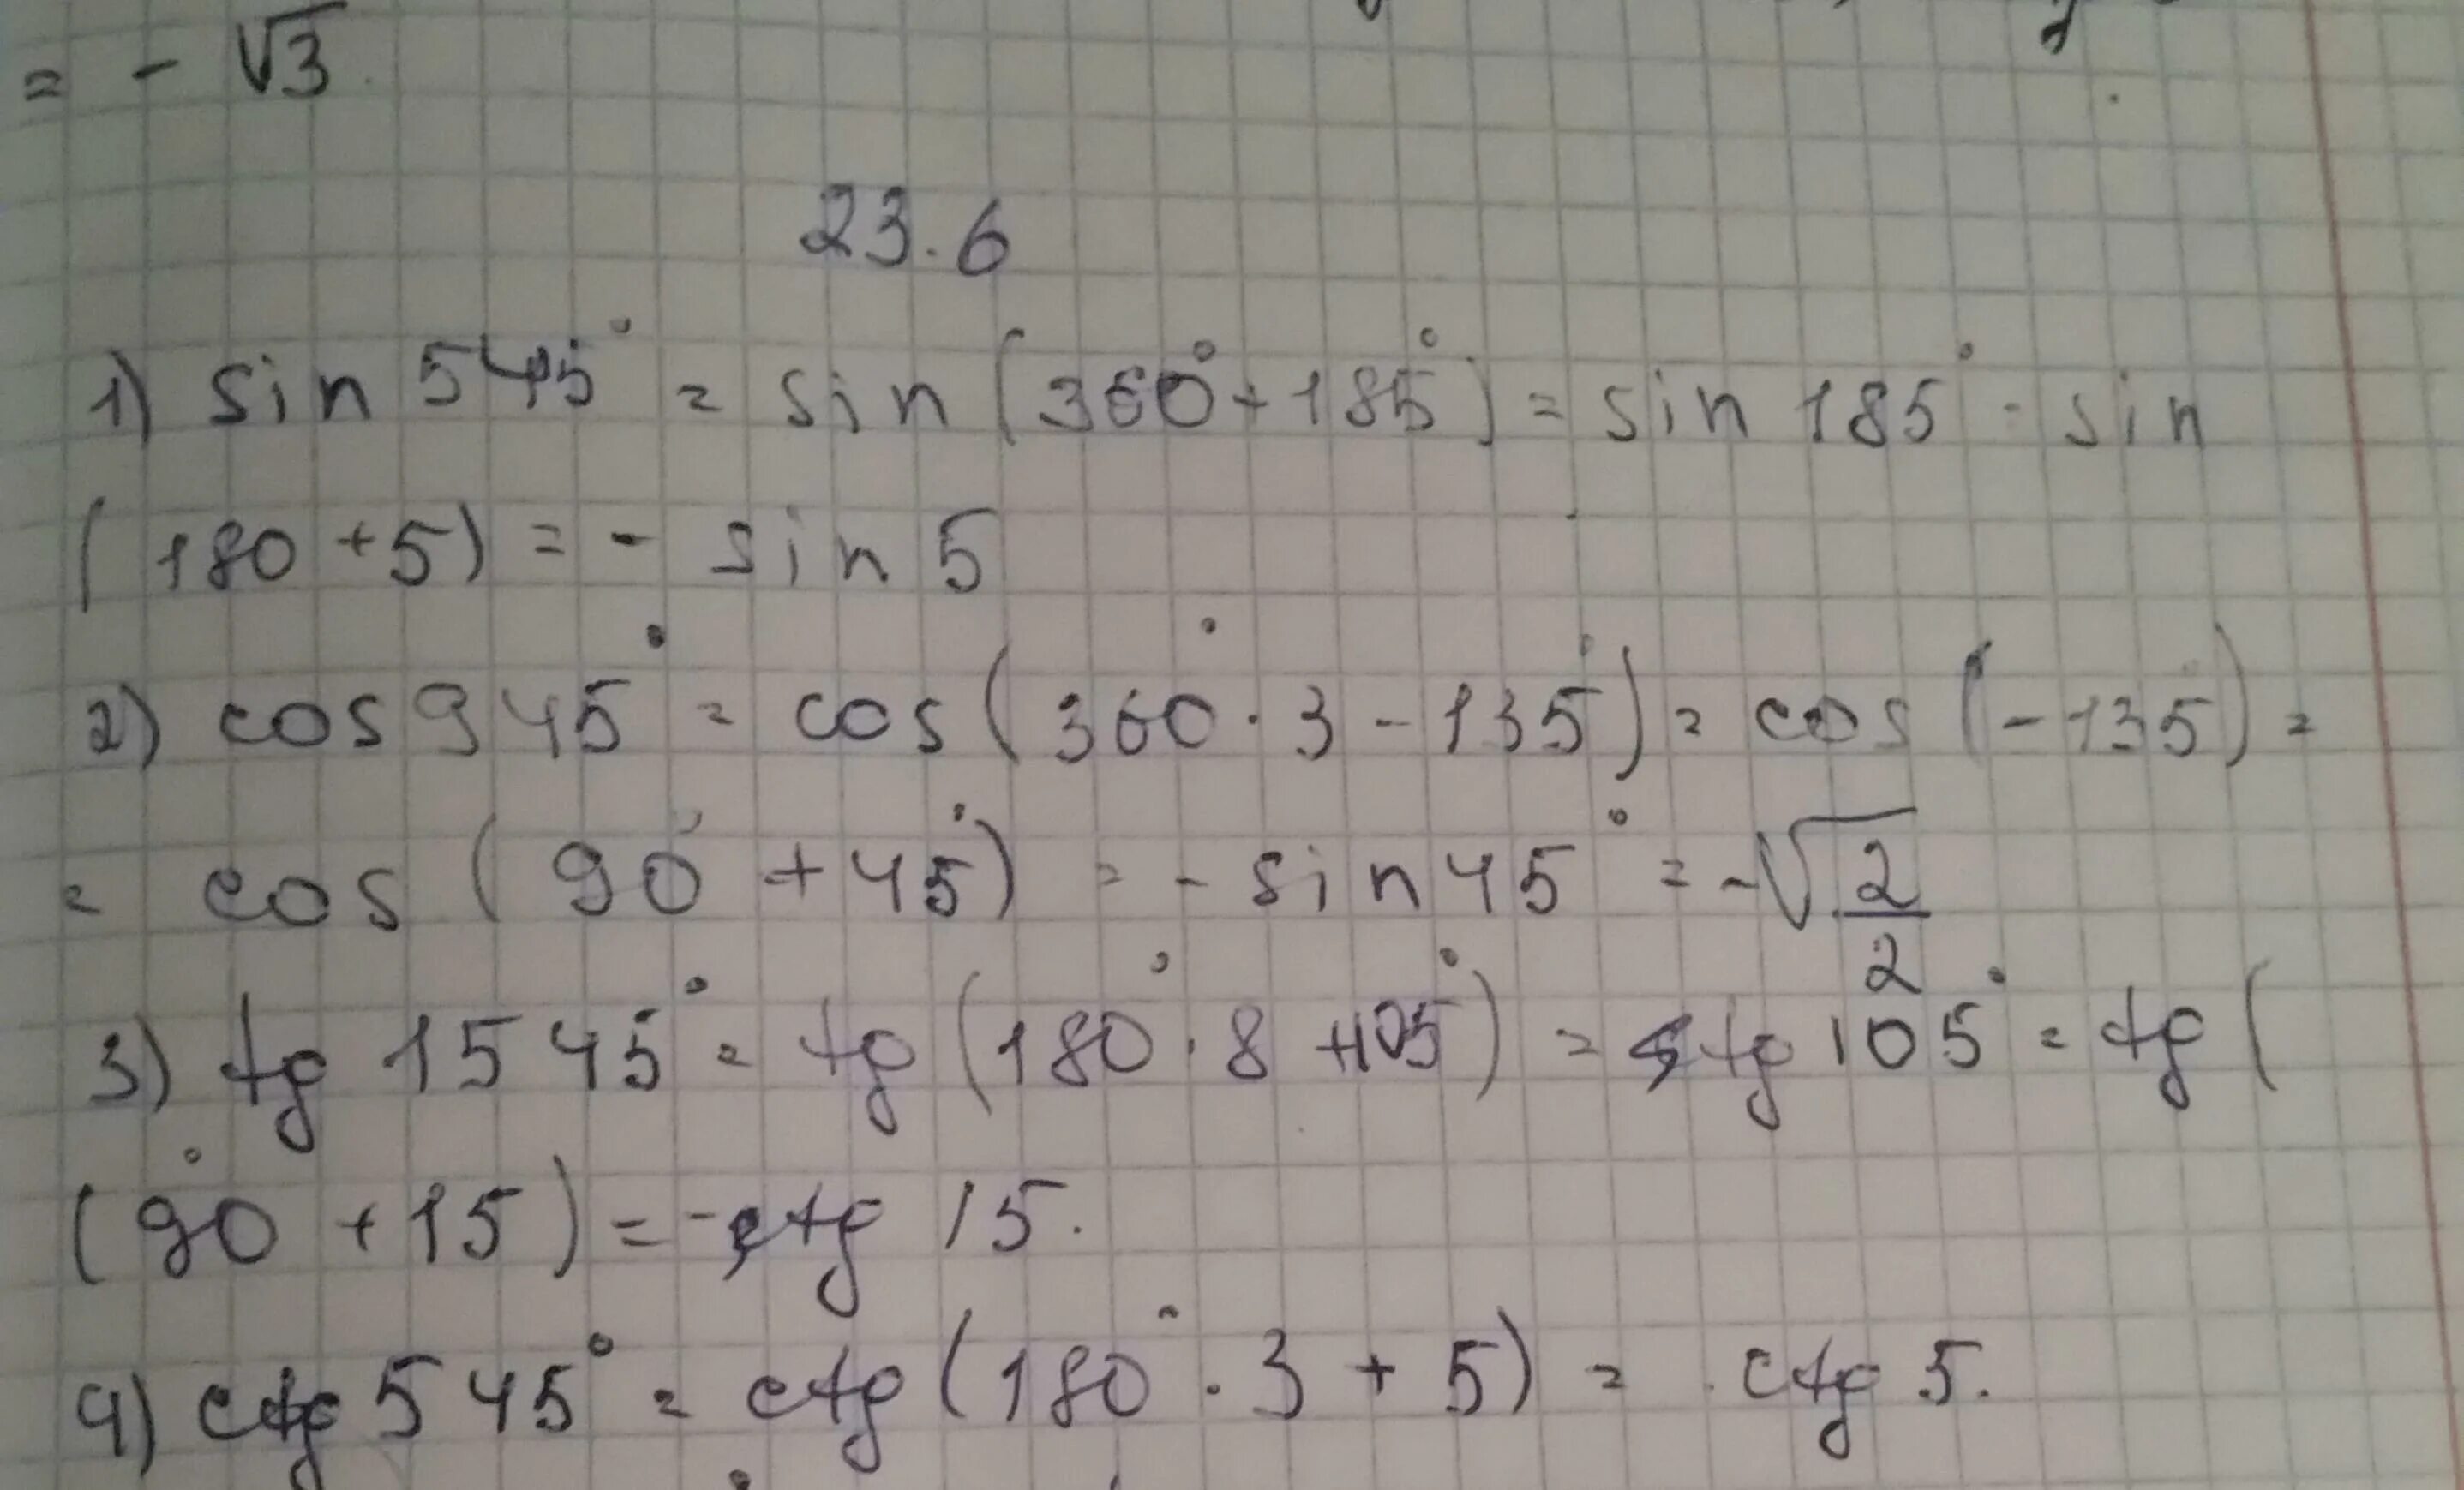 = - √3
23.6
1) sin 545° = sin (360° + 185°) = sin 185° = sin
(180 + 5) = - sin 5
2) cos 945° = cos (360° · 3 - 135°) = cos (-135°) =
= cos (90° + 45°) = - sin 45° = -√2/2
3) tg 1545° = tg (180° · 8 + 105°) = tg 105° = tg (
(90° + 15) = - ctg 15.
4) ctg 545° = ctg (180° · 3 + 5) = ctg 5.